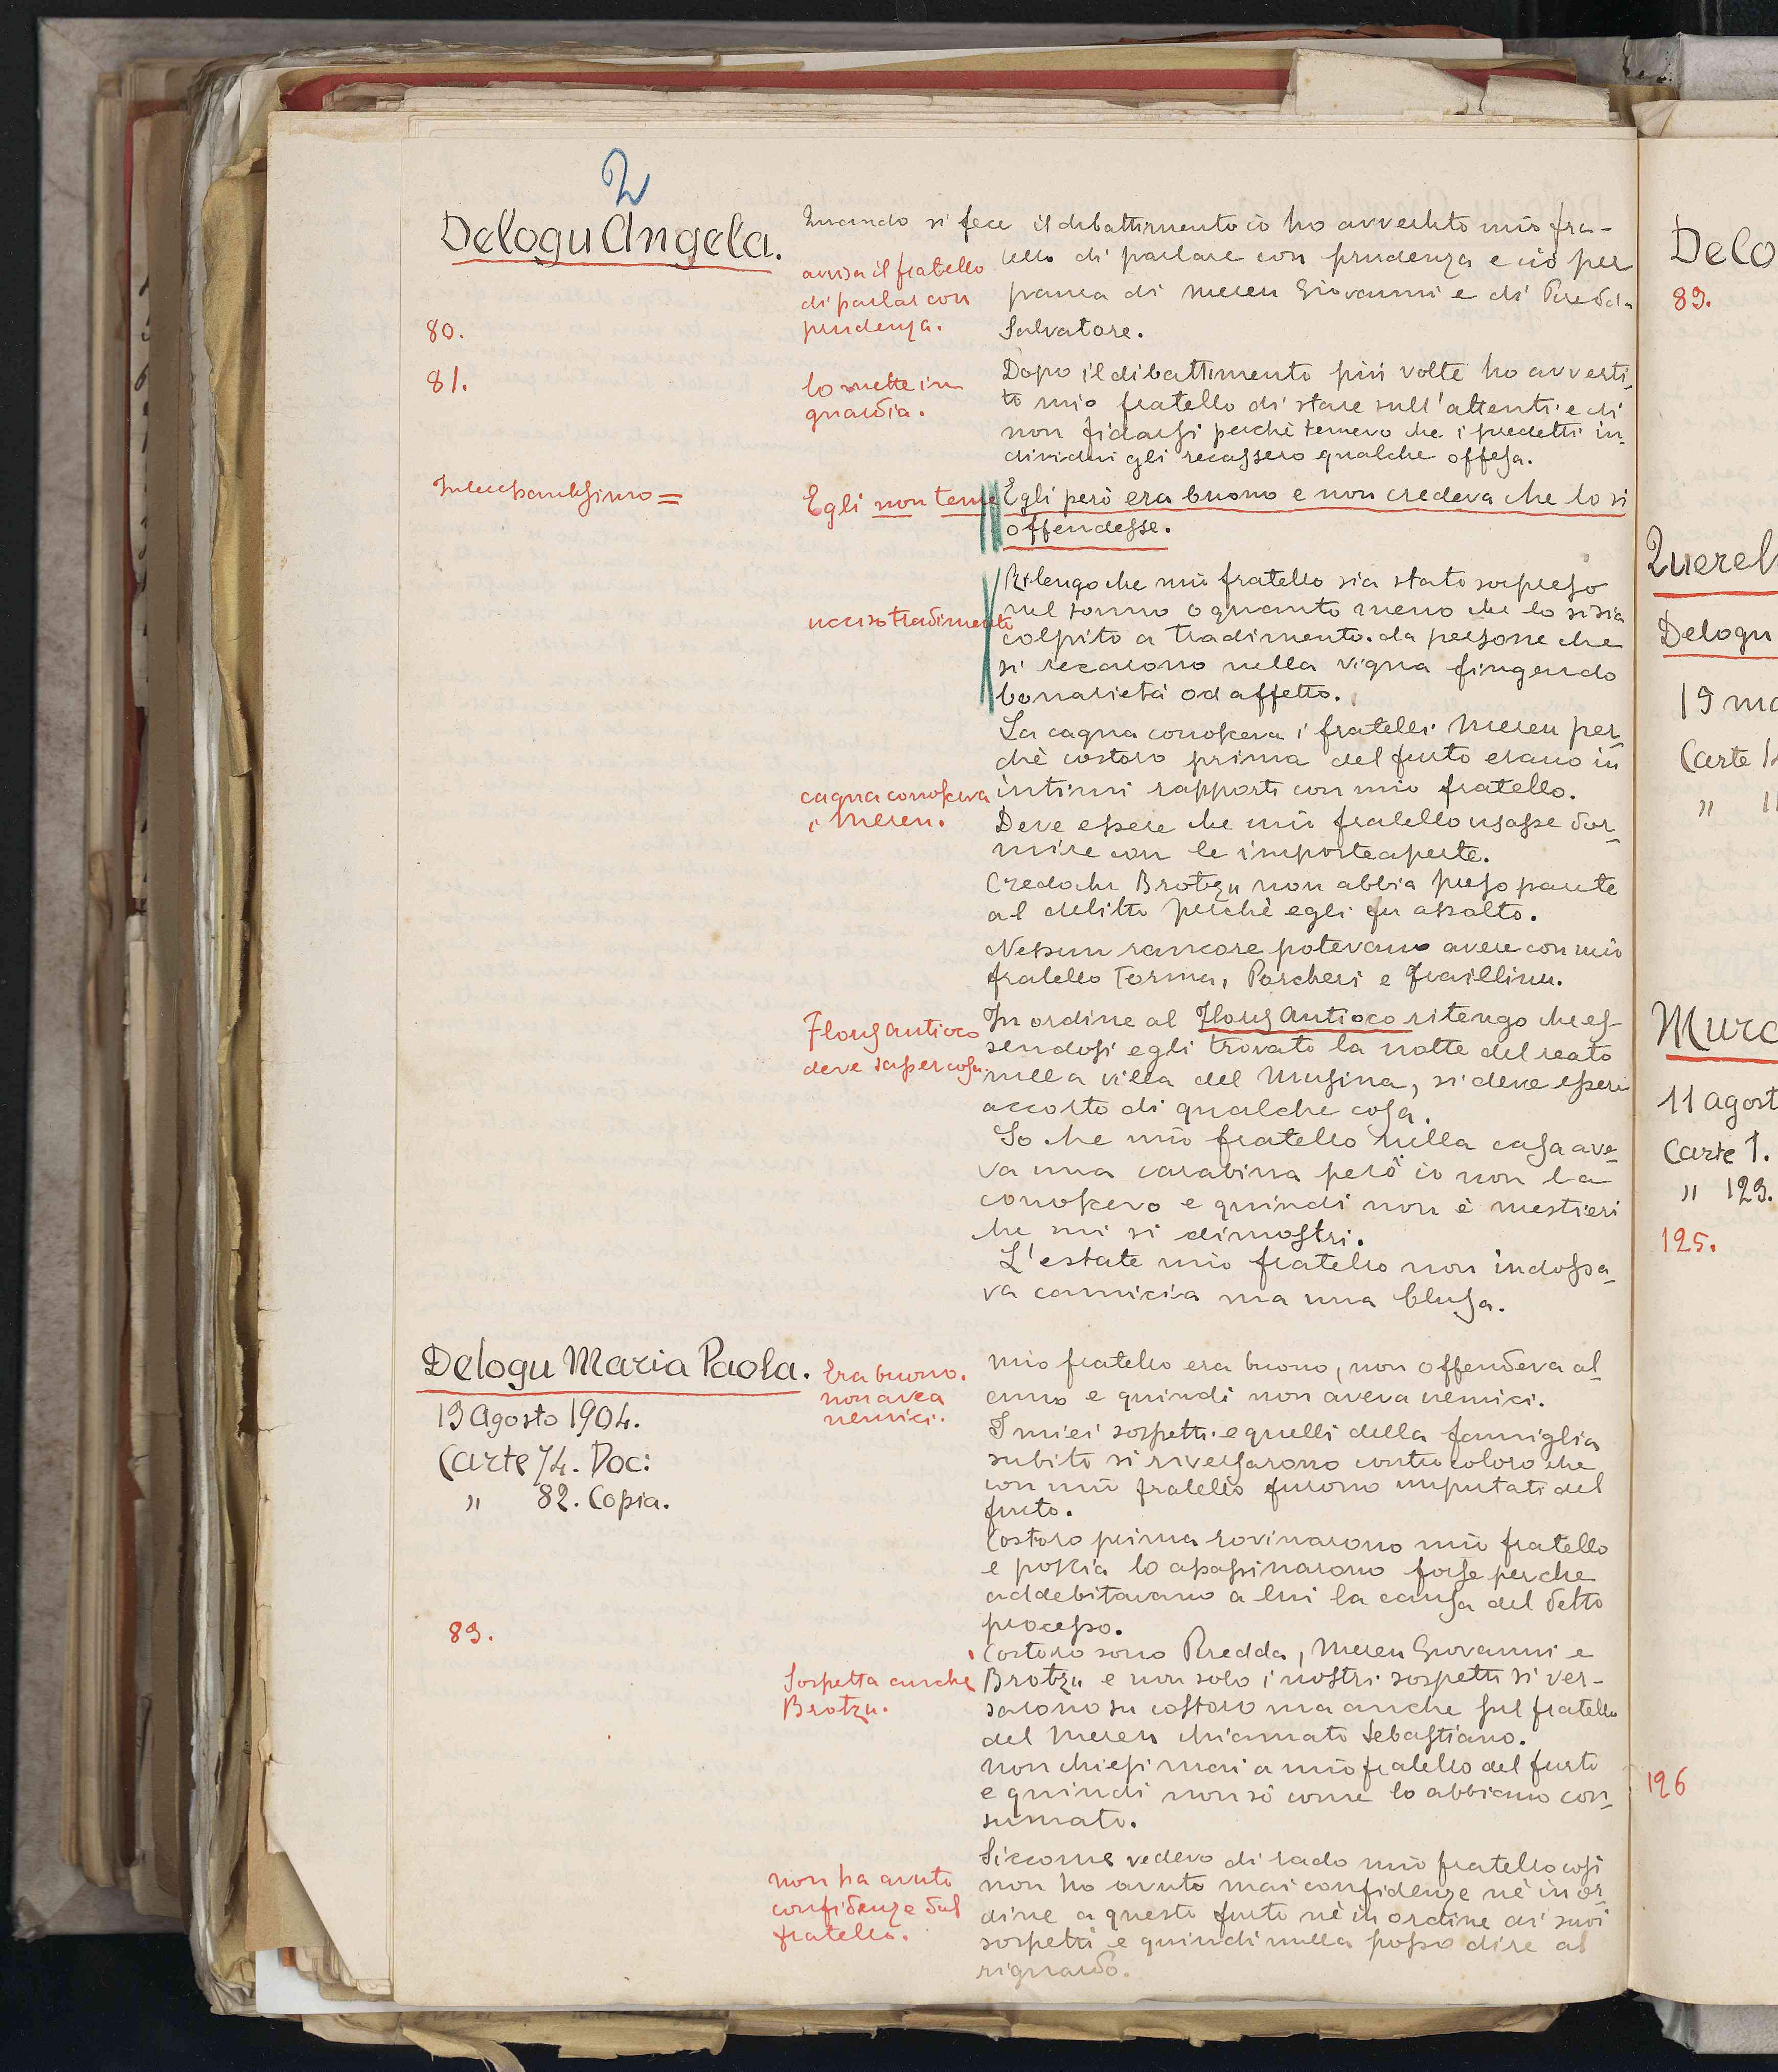 2
Delogu Angela.
80.
81.
Interessantissimo =
avvisa il fratello
di parlar con
prudenza.
lo mette in
guardia.
Egli non teme
ucciso tradimento
cagna conosceva
i Mereu.
Flori Antioco
deve saper cosa
Quando si fece il dibattimento io ho avvertito mio fra-
tello di parlare con prudenza e ciò per
paura di Mereu Giovanni e di Piredda
Salvatore.
Dopo il dibattimento più volte ho avverti-
to mio fratello di stare sull'attenti e di
non fidarsi perché temevo che i predetti in-
dividui gli recassero qualche offesa.
Egli però era buono e non credeva che lo si
offendesse.
Ritengo che mio fratello sia stato sorpreso
nel sonno o quanto meno che lo si sia
colpito a tradimento da persone che
si recarono nella vigna fingendo
bonarietà od affetto.
La cagna conosceva i fratelli Mereu per-
chè costoro prima del furto erano in
intimi rapporti con mio fratello.
Deve essere che mio fratello usasse dor-
mire con le imposte aperte.
Credo che Brotzu non abbia preso parte
al delitto perchè egli fu assolto.
Nessun rancore potevano avere con mio
fratello Torma, Porcheri e Fraillinu.
In ordine al Flori Antioco ritengo che es-
sendosi egli trovato la notte del reato
nella villa del Musina, si deve essere
accorto di qualche cosa.
So che mio fratello nella casa ave-
va una carabina però io non la
conoscevo e quindi non è mestieri
che mi si dimostri.
L'estate mio fratello non indossa-
va camicia ma una blusa.
Delogu Maria Paola.
13 Agosto 1904.
Carte 74. Doc:
" 82. Copia.
83.
Era buono.
non avea
nemici.
Sospetta anche
Brotzu.
non ha avuto
confidenze dal
fratello.
mio fratello era buono, non offendeva al-
cuno e quindi non aveva nemici.
I miei sospetti e quelli della famiglia
subito si riversarono contro coloro che
con mio fratello furono imputati del
furto.
Costoro prima rovinarono mio fratello
e poscia lo assassinarono forse perche
addebitavano a lui la causa del detto
processo.
Costoro sono Piredda, Mereu Giovanni e
Brotzu e non solo i nostri sospetti si ver-
sarono su costoro ma anche sul fratello
del Mereu chiamato Sebastiano.
Non chiesi mai a mio fratello del furto
e quindi non sò come lo abbiano con-
sumato.
Siccome vedevo di rado mio fratello così
non ho avuto mai confidenze nè in or-
dine a questo furto nè in ordine ai suoi
sospetti e quindi nulla posso dire al
riguardo.
Delo
89.
Querel
Delogu
19 ma
Carte 1
"
Murc
11 agost
Carte 1.
" 123.
125.
126